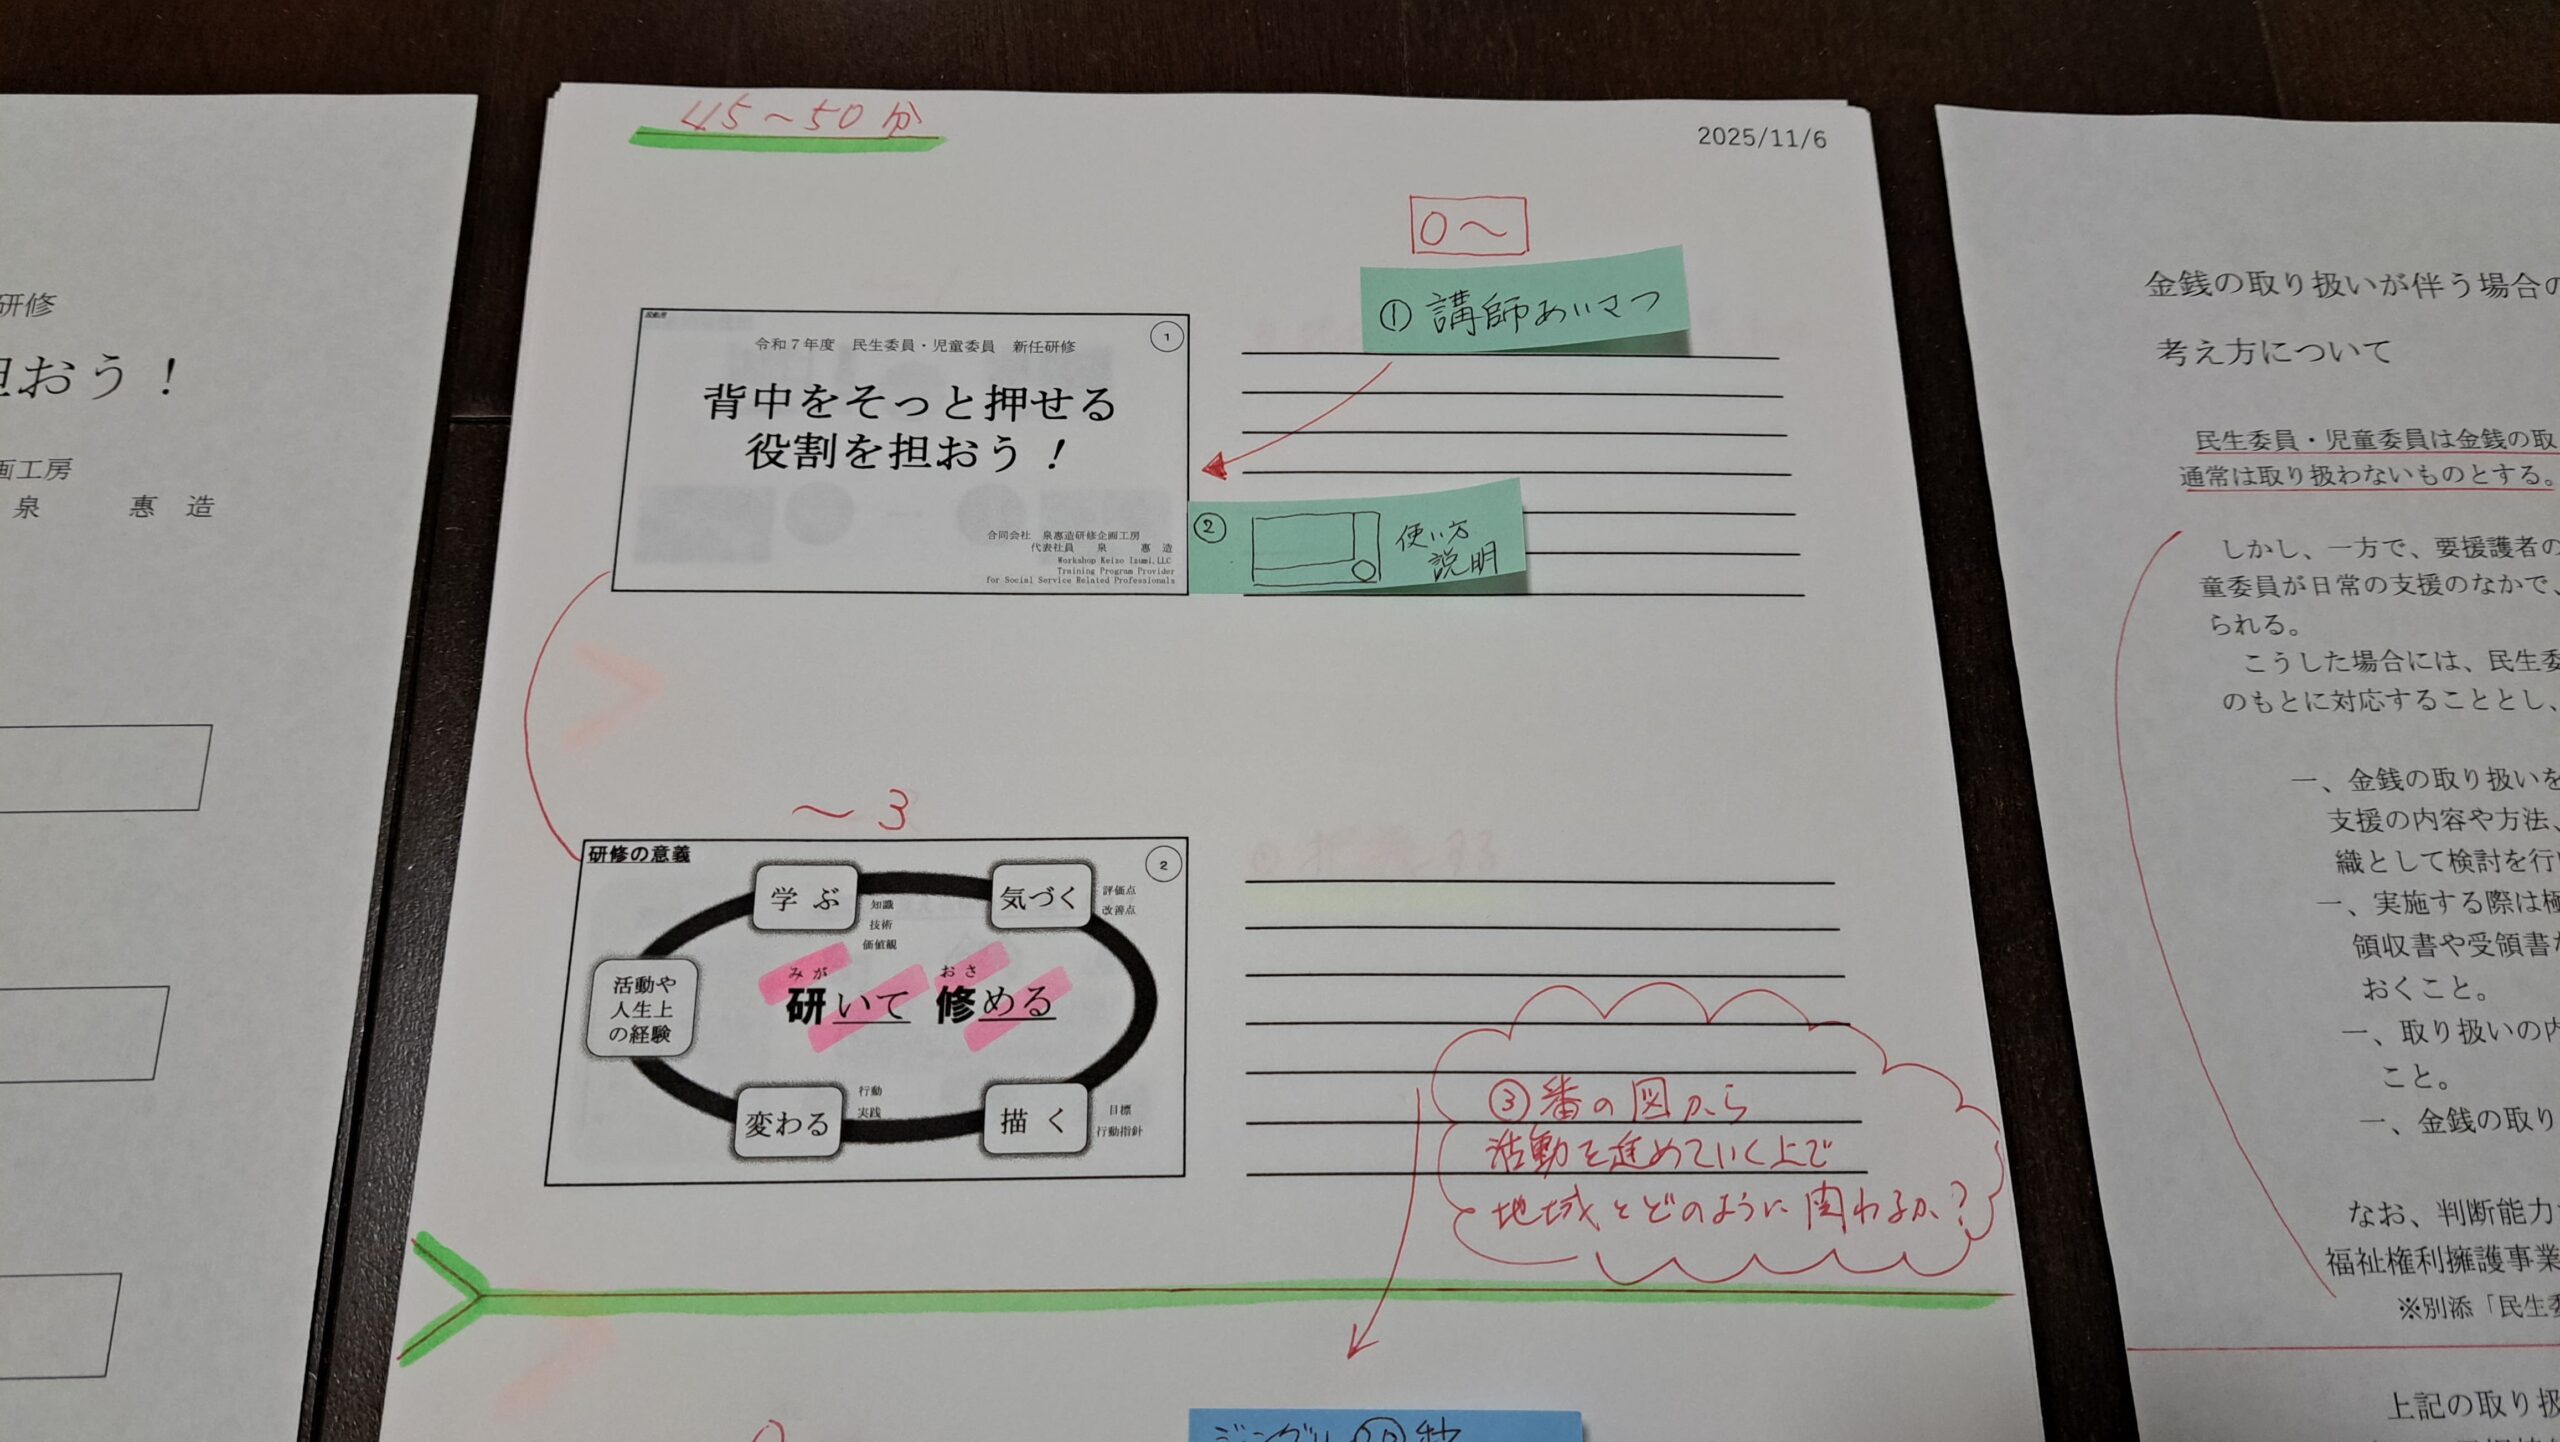 研修
担おう！
画工房
泉 惠 造
45～50分
2025/11/6
0～
①講師あいさつ
1
令和７年度 民生委員・児童委員 新任研修
背中をそっと押せる
役割を担おう！
合同会社 泉惠造研修企画工房
代表社員 泉 惠 造
Workshop Keizo Izumi,LLC
Training Program Provider
for Social Service Related Professionals
② 使い方
説明
～3
研修の意義
2
学ぶ
知識
技術
価値観
気づく
評価点
改善点
みが おさ
研いて 修める
活動や
人生上
の経験
変わる
行動
実践
描く
目標
行動指針
③番の図から
活動を進めていく上で
地域とどのように関わるか？
ジングル 20秒
金銭の取り扱いが伴う場合の
考え方について
民生委員・児童委員は金銭の取
通常は取り扱わないものとする。
しかし、一方で、要援護者の
童委員が日常の支援のなかで、
られる。
こうした場合には、民生委
のもとに対応することとし、
一、金銭の取り扱いを
支援の内容や方法、
織として検討を行
一、実施する際は極
領収書や受領書
おくこと。
一、取り扱いの内
こと。
一、金銭の取り
なお、判断能力
福祉権利擁護事業
※別添「民生委
上記の取り扱